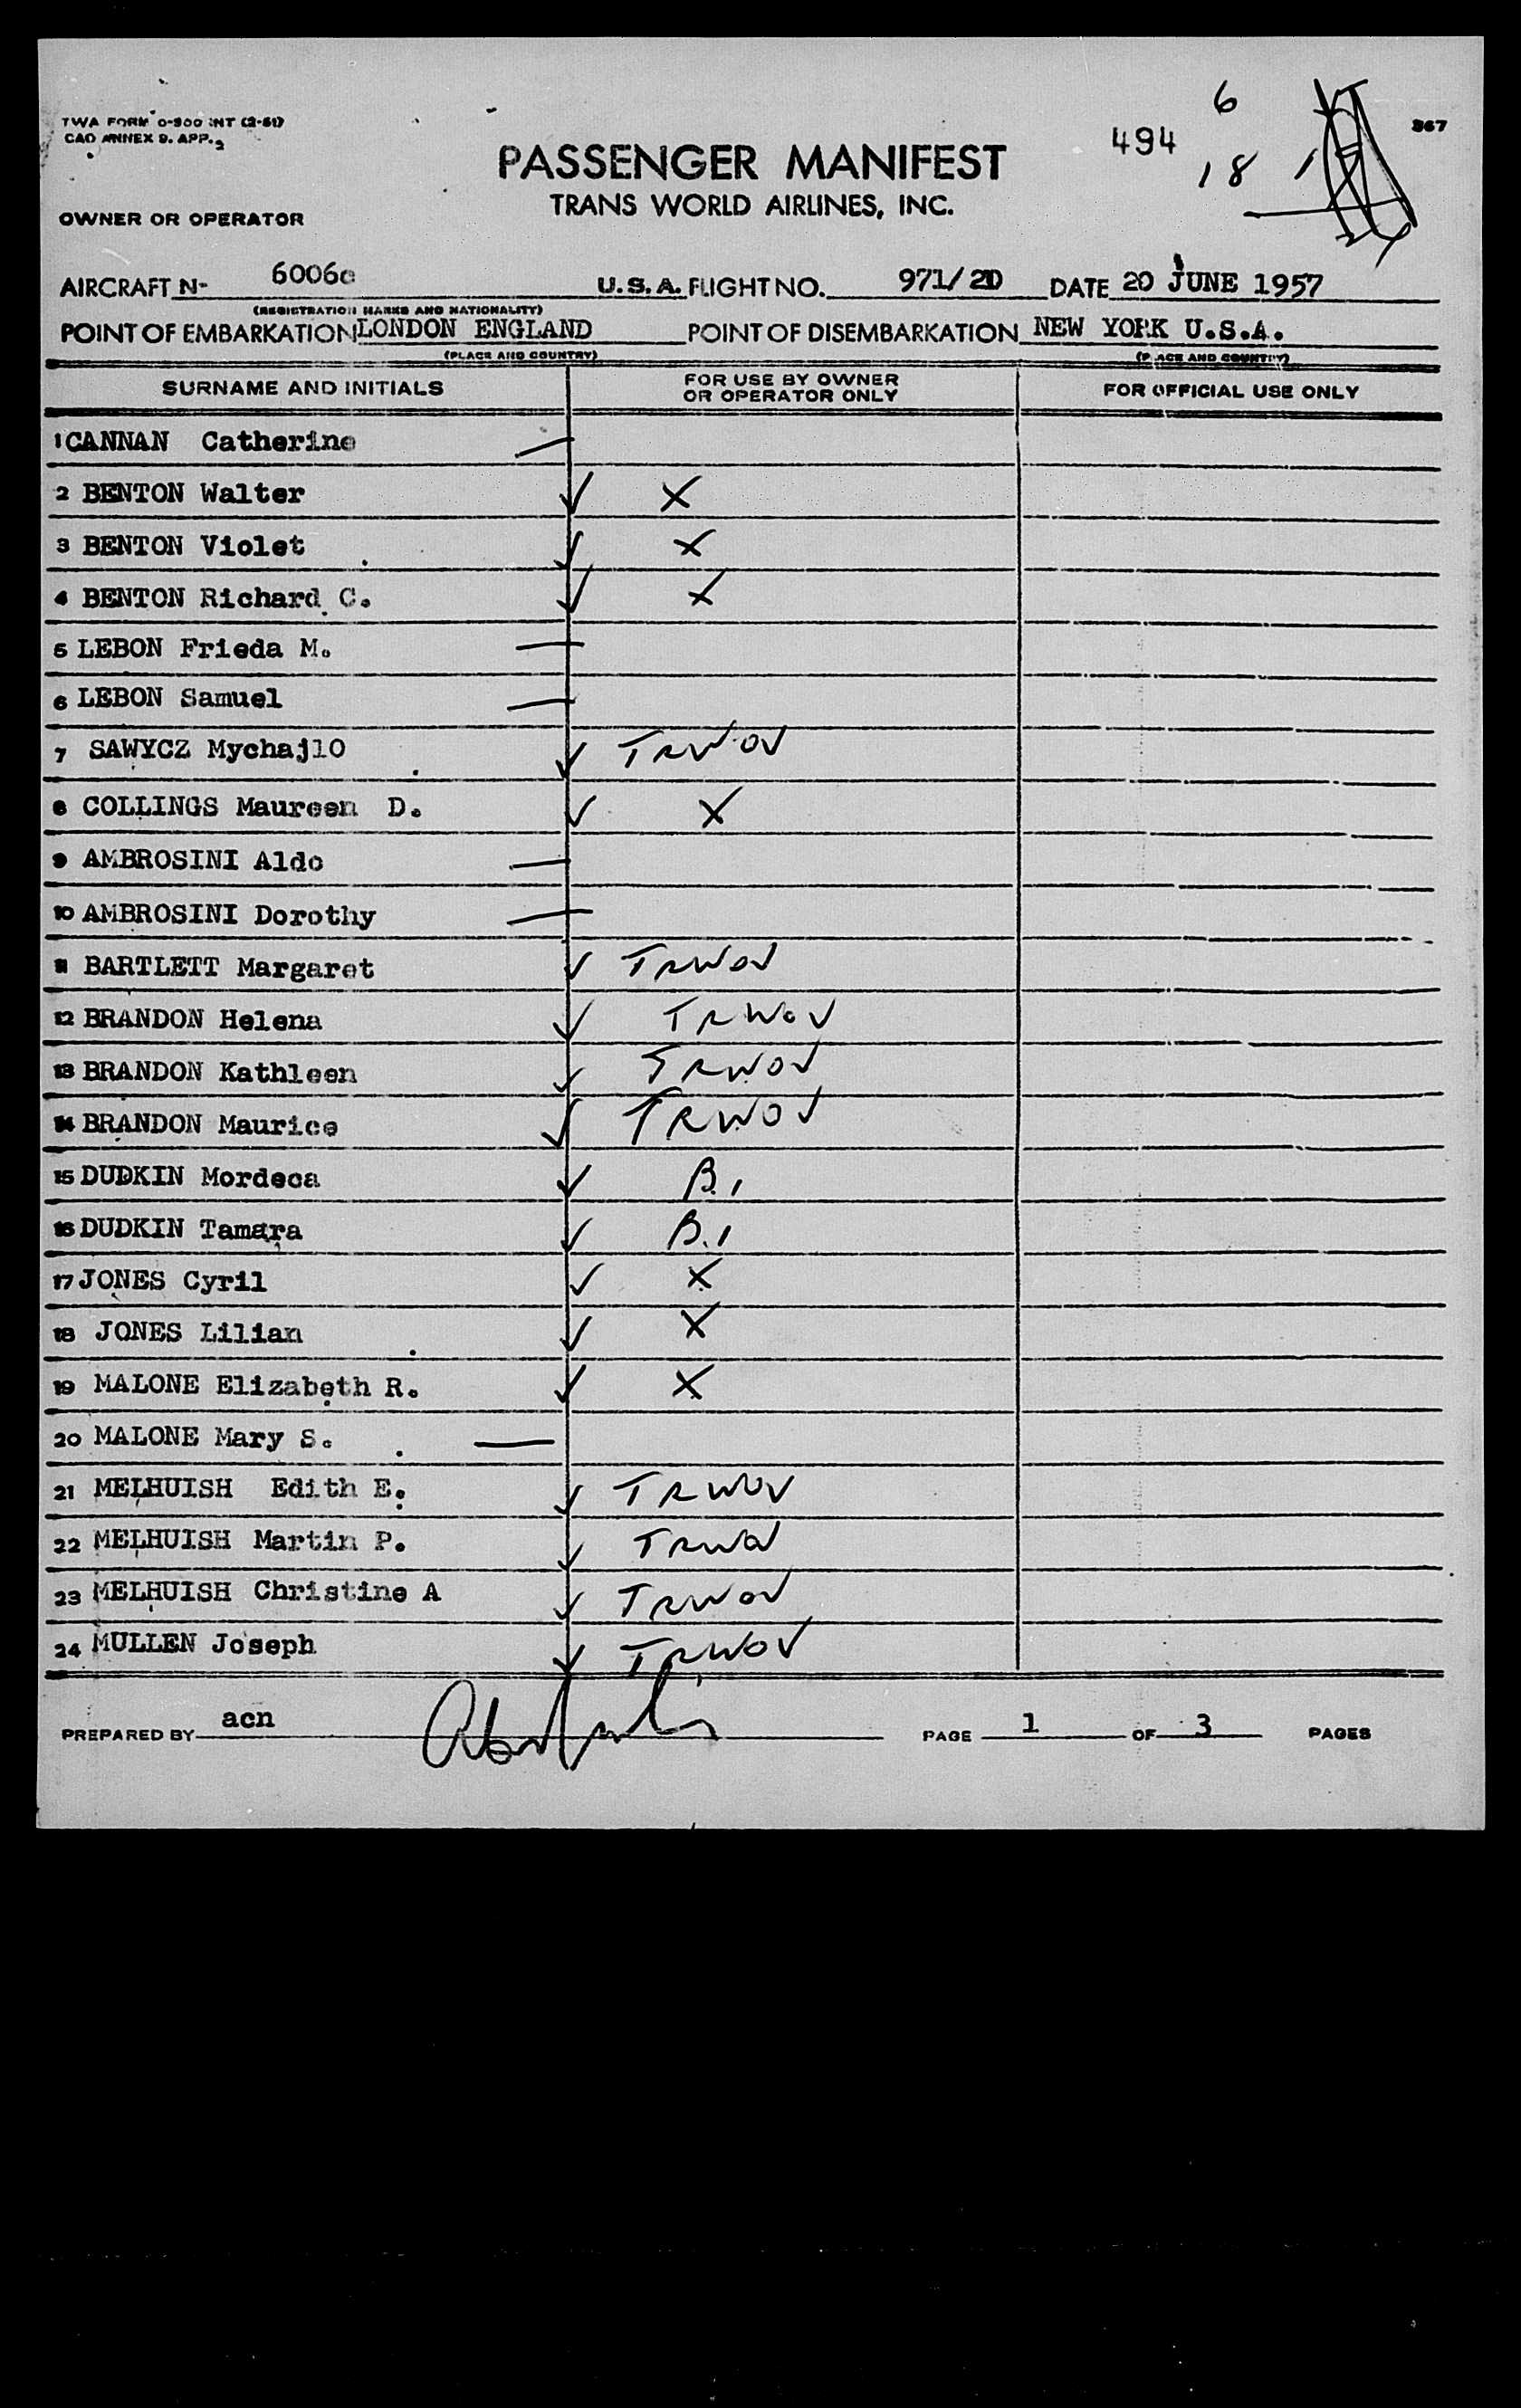 TWA FORM O-900 INT (2-61)
CAO ANNEX 9. APP. 2
6
494
367
18
PASSENGER MANIFEST
TRANS WORLD AIRLINES, INC.
OWNER OR OPERATOR
AIRCRAFT N- 6006C U.S.A. FLIGHT NO. 971/20 DATE 20 JUNE 1957
(REGISTRATION MARKS AND NATIONALITY)
POINT OF EMBARKATION LONDON ENGLAND POINT OF DISEMBARKATION NEW YORK U.S.A.
(PLACE AND COUNTRY) (PLACE AND COUNTRY)
SURNAME AND INITIALS FOR USE BY OWNER OR OPERATOR ONLY FOR OFFICIAL USE ONLY
1 CANNAN Catherine —
2 BENTON Walter ✓ X
3 BENTON Violet ✓ X
4 BENTON Richard C. ✓ X
5 LEBON Frieda M. —
6 LEBON Samuel —
7 SAWYCZ Mychajlo ✓ TRWOV
8 COLLINGS Maureen D. ✓ X
9 AMBROSINI Aldo —
10 AMBROSINI Dorothy —
11 BARTLETT Margaret ✓ TRWOV
12 BRANDON Helena ✓ TRWOV
13 BRANDON Kathleen ✓ TRWOV
14 BRANDON Maurice ✓ TRWOV
15 DUDKIN Mordeca ✓ B.1
16 DUDKIN Tamara ✓ B.1
17 JONES Cyril ✓ X
18 JONES Lilian ✓ X
19 MALONE Elizabeth R. ✓ X
20 MALONE Mary S. —
21 MELHUISH Edith E. ✓ TRWOV
22 MELHUISH Martin P. ✓ TRWOV
23 MELHUISH Christine A ✓ TRWOV
24 MULLEN Joseph ✓ TRWOV
PREPARED BY acn PAGE 1 OF 3 PAGES